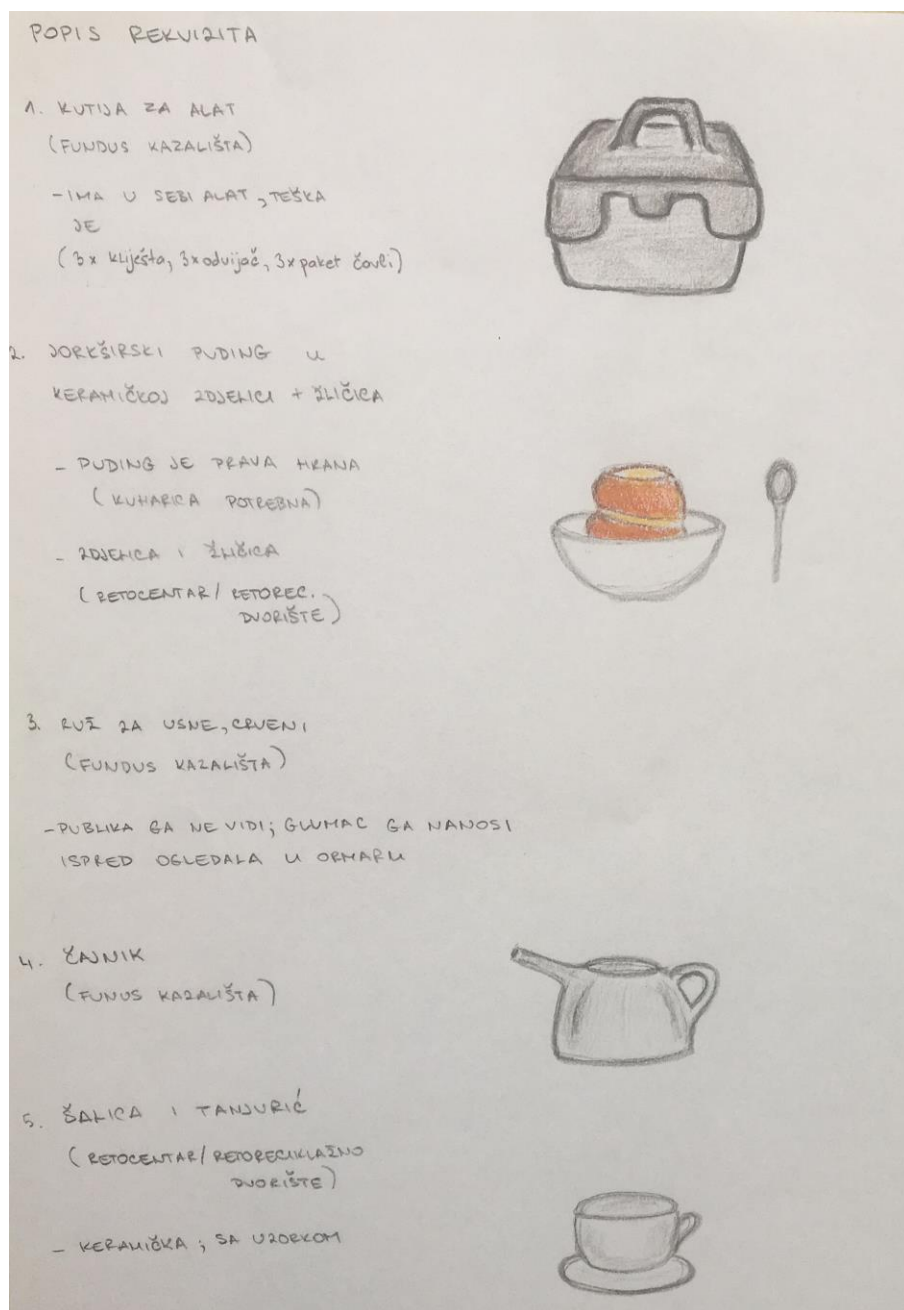 POPIS REKVIZITA
1. KUTIJA ZA ALAT
(FUNDUS KAZALIŠTA)
- IMA U SEBI ALAT, TEŠKA
JE
(3x kliješta, 3x odvijač, 3x paket čavli)
2. JORKŠIRSKI PUDING U
KERAMIČKOJ ZDJELICI + ŽLIČICA
- PUDING JE PRAVA HRANA
(KUHARICA POTREBNA)
- ZDJELICA I ŽLIČICA
(RETOCENTAR/ RETOREC.
DVORIŠTE)
3. RUŽ ZA USNE, CRVENI
(FUNDUS KAZALIŠTA)
- PUBLIKA GA NE VIDI; GLUMAC GA NANOSI
ISPRED OGLEDALA U ORMARU
4. ČAJNIK
(FUNUS KAZALIŠTA)
5. ŠALICA I TANJURIĆ
(RETOCENTAR/ RETORECIKLAŽNO
DVORIŠTE)
- KERAMIČKA; SA UZORKOM